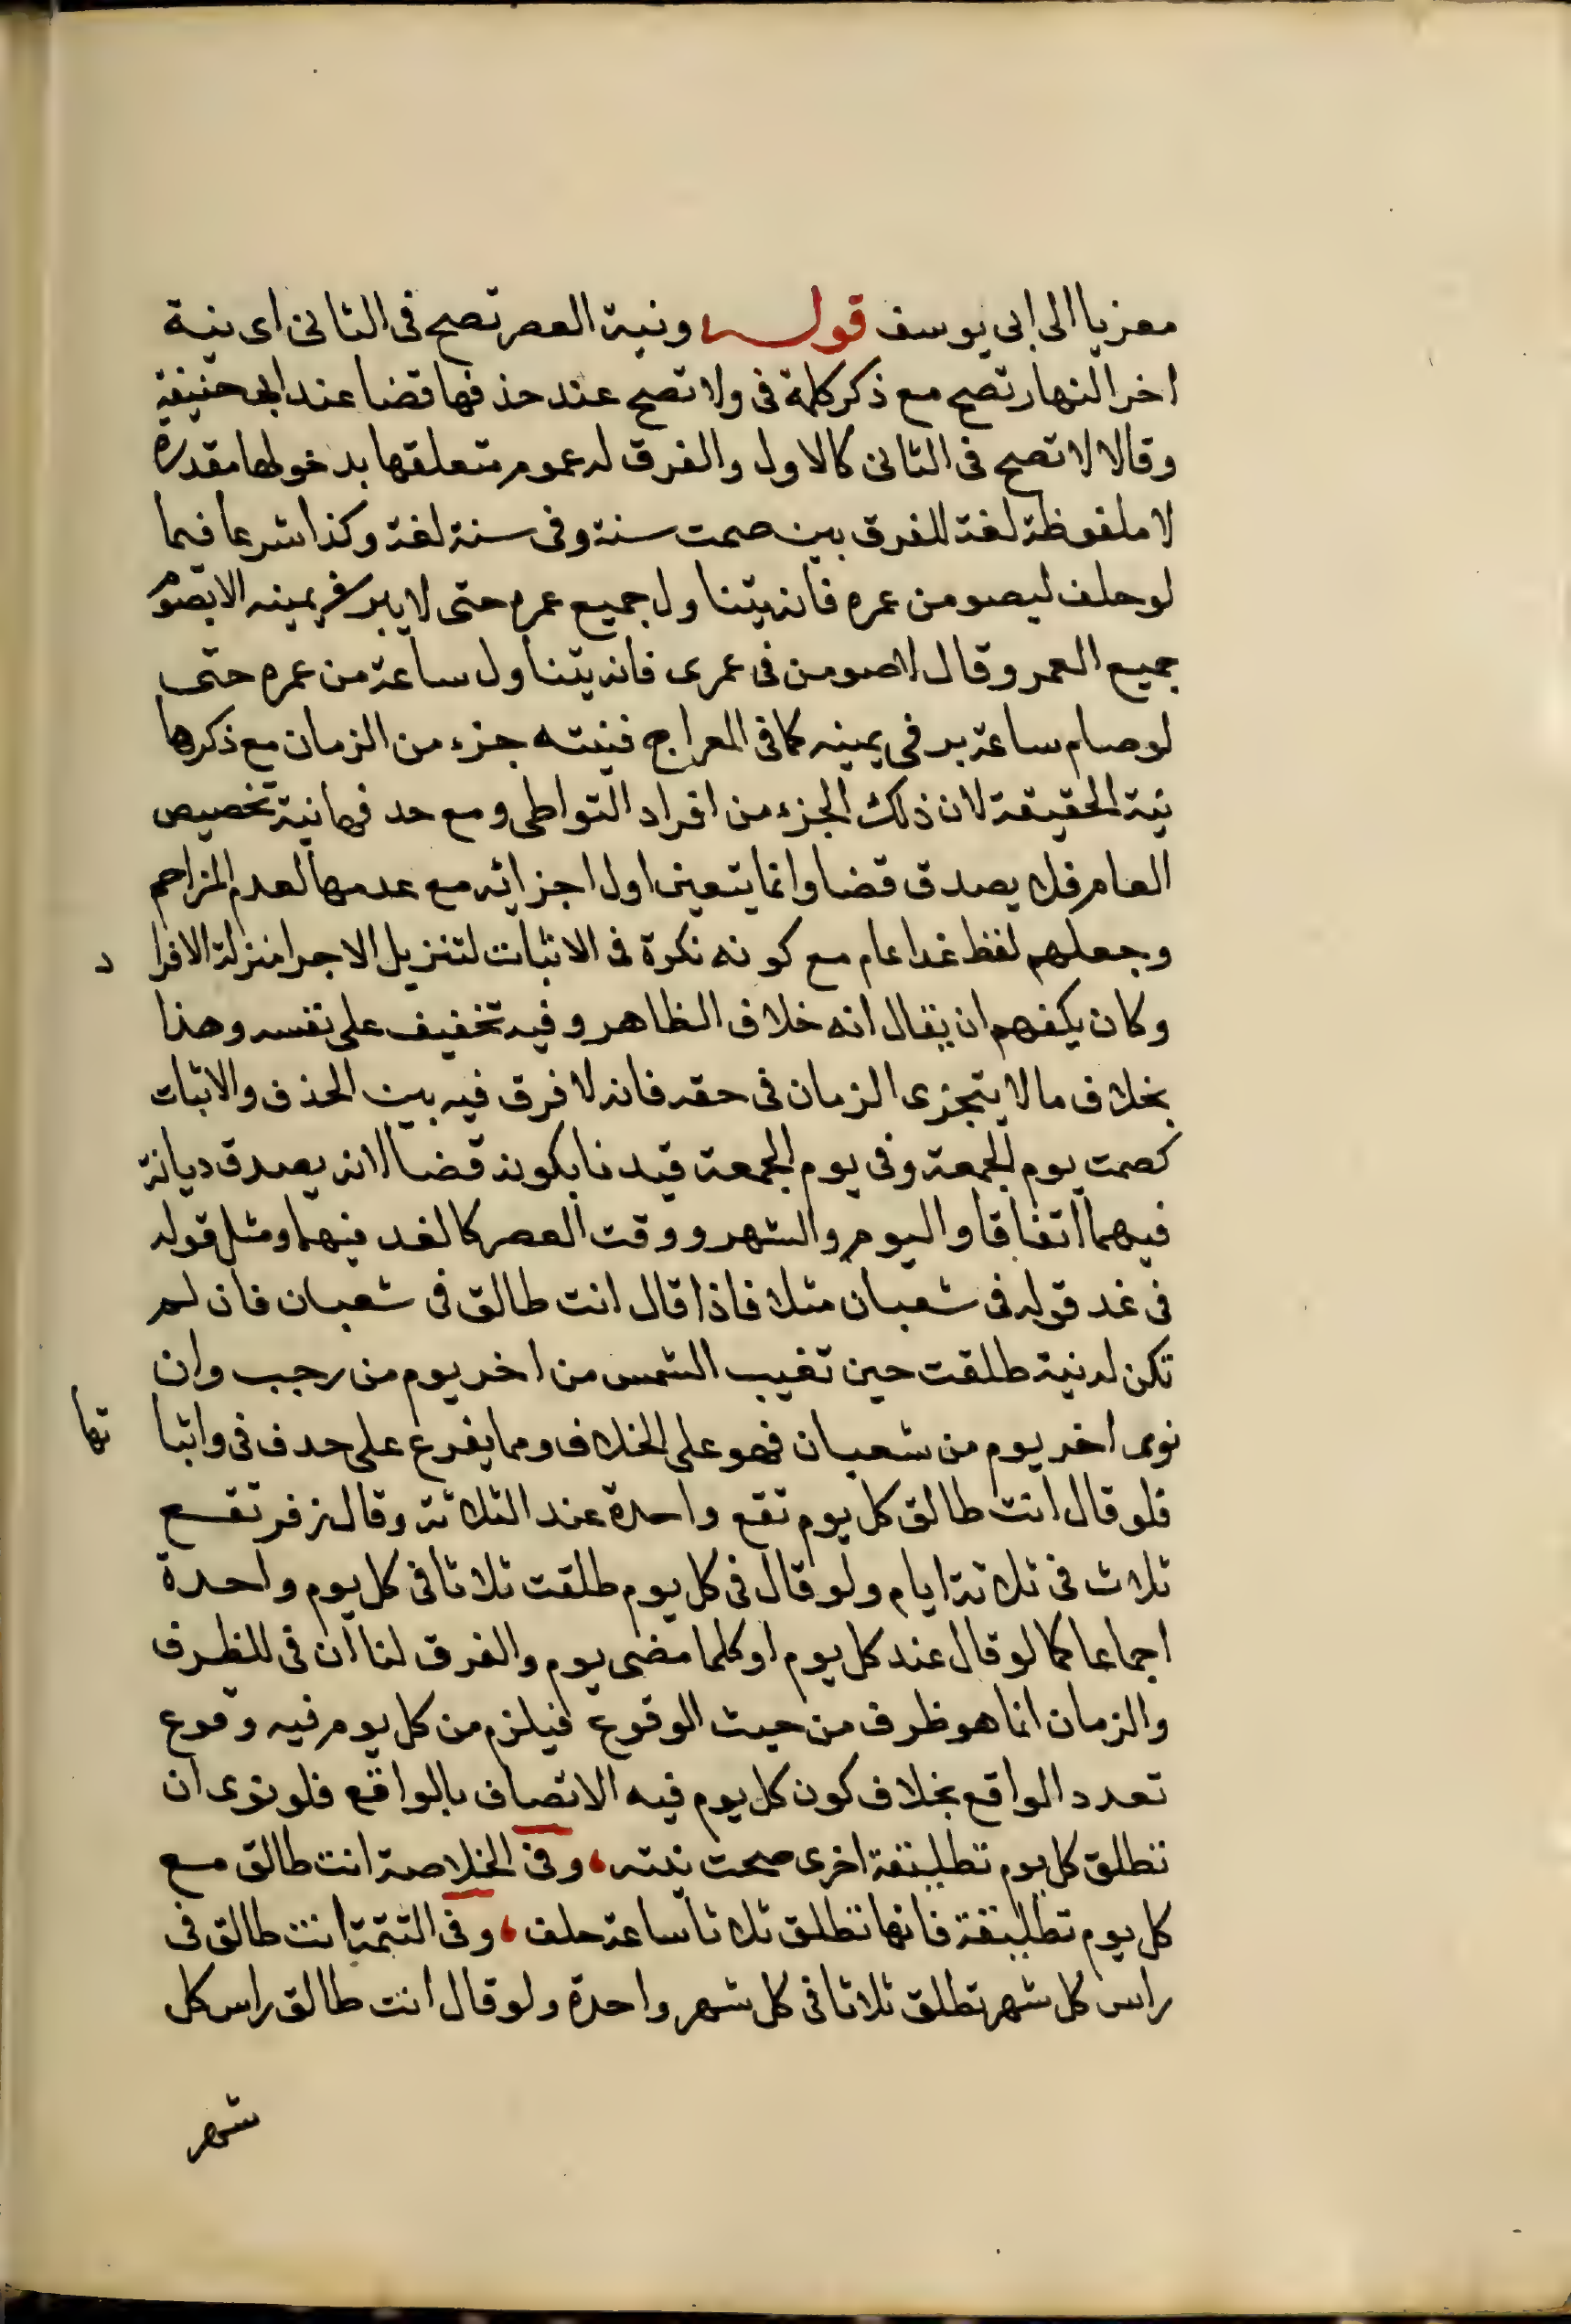 معزيا الى ابى يوسف قوله ونية العصر تصح فى الثانى اى نية
اخر النهار تصح مع ذكر كلمة فى ولا تصح عند حذفها قضا عند ابى حنيفة
وقالا لا تصح فى الثانى كالاول والفرق له عموم متعلقها بدخولها مقدرة
لا ملفوظة لغة للفرق بين صمت سنة وفى سنة لغة وكذا شرعا فيما
لو حلف ليصومن عمره فانه يتناول جميع عمره حتى لا يبر فى يمينه الا بصوم
جميع العمر وقال لاصومن فى عمرى فانه يتناول ساعة من عمره حتى
لو صام ساعة بر فى يمينه كما فى المعراج فنيته جزء من الزمان مع ذكرها
نية الحقيقة لان ذلك الجزء من افراد التواطى ومع حدفها نية تخصيص
العام فلا يصدق قضا وانما يتعين اول اجزائه مع عدمها لعدم المزاحم
وجعلهم لفظ غدا عام مع كونه نكرة فى الاثبات لتنزيل الاجزا منزلة الافراد
وكان يكفهم ان يقال انه خلاف الظاهر وفيه تخفيف على نفسه وهذا
بخلاف ما لا يتجزى الزمان فى حقه فانه لا فرق فيه بين الحذف والاثبات
كصمت يوم الجمعة وفى يوم الجمعة قيدنا بكونه قضا لانه يصدق ديانة
فيهما اتفاقا واليوم والشهر ووقت العصر كالغد فيهما ومثل قوله
فى غد قوله فى شعبان مثلا فاذا قال انت طالق فى شعبان فان لم
تكن له نية طلقت حين تغيب الشمس من اخر يوم من رجب وان
نوى اخر يوم من شعبان فهو على الخلاف ومما يفرع على حدف فى واثباتها
فلو قال انت طالق كل يوم تقع واحدة عند الثلاثة وقال زفر تقع
ثلاث فى ثلاثة ايام ولو قال فى كل يوم طلقت ثلاثا فى كل يوم واحدة
اجماعا كما لو قال عند كل يوم او كلما مضى يوم والفرق لنا ان فى للظرف
والزمان انما هو ظرف من حيث الوقوع فيلزم من كل يوم فيه وقوع
تعدد الواقع بخلاف كون كل يوم فيه الاتصاف بالواقع فلو نوى ان
تطلق كل يوم تطليقة اخرى صحت نيته، وفى الخلاصة انت طالق مع
كل يوم تطليقة فانها تطلق ثلاثا ساعة حلف، وفى التتمة انت طالق فى
راس كل شهر تطلق ثلاثا فى كل شهر واحدة ولو قال انت طالق راس كل
شهر